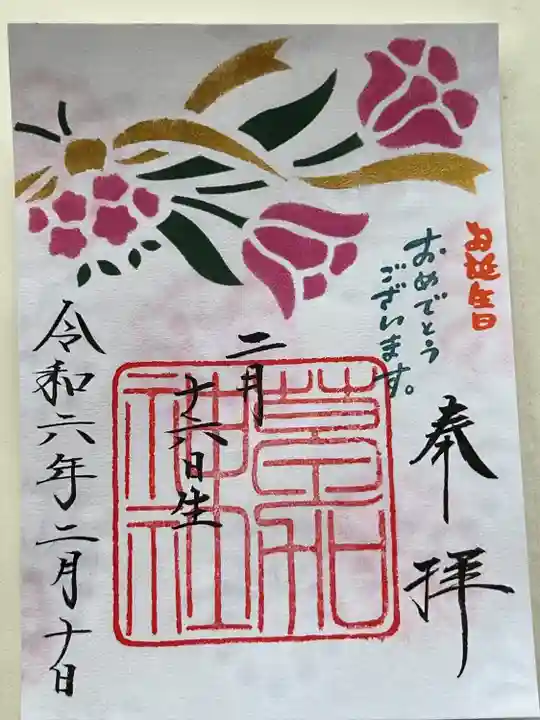 お誕生日
おめでとう
ございます。
奉拝
二月
十六日生
令和六年二月十日